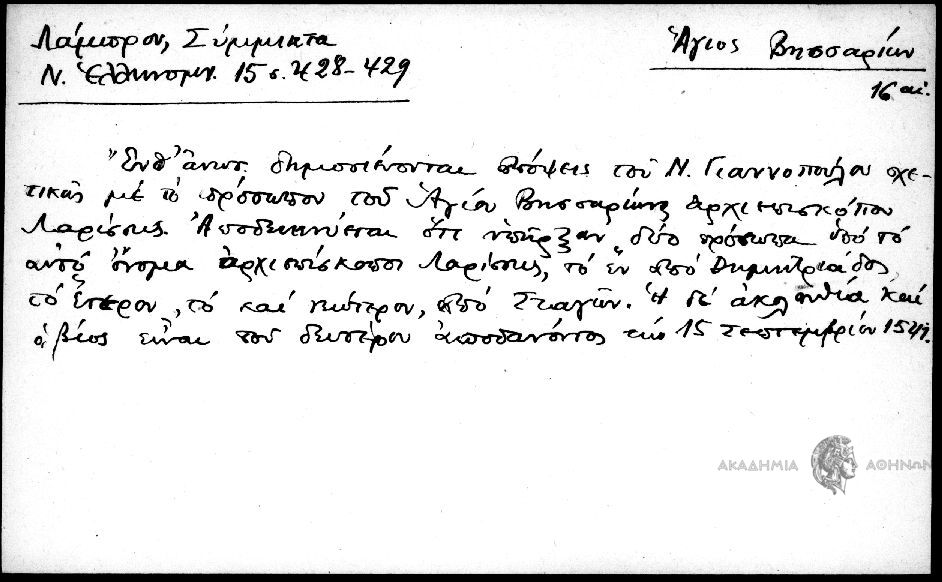 Λάμπρου, Σύμμικτα
Ν. Ἑλληνομν. 15 σ. 428-429
Ἅγιος Βησσαρίων
16 αἰ.
Ἐνθ' ἀνωτ. δημοσιεύονται ἀπόψεις τοῦ Ν. Γιαννοπούλου σχε-
τικαὶ μὲ τὸ πρόσωπον τοῦ Ἁγίου Βησσαρίωνος ἀρχιεπισκόπου
Λαρίσσης. Ἀποδεικνύεται ὅτι ὑπῆρξαν "δύο πρόσωπα ὑπὸ τὸ
αὐτὸ ὄνομα ἀρχιεπίσκοποι Λαρίσσης, τὸ ἓν ἀπὸ Δημητριάδος,
τὸ ἕτερον, τὸ καὶ νεώτερον, ἀπὸ Σταγῶν. Ἡ δὲ ἀκολουθία καὶ
ὁ βίος εἶναι τοῦ δευτέρου ἀποθανόντος τῇ 15 Σεπτεμβρίου 1541.
ΑΚΑΔΗΜΙΑ ΑΘΗΝΩΝ